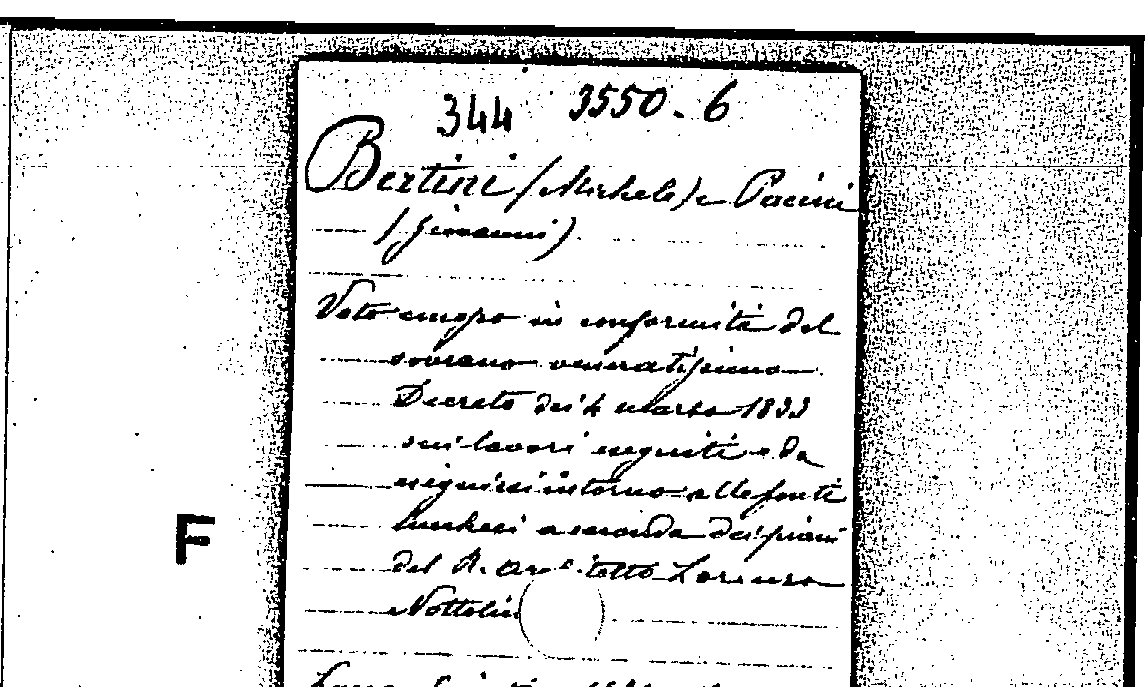 344 3550.6
Bertini (Michele) e Pacini
(Giovanni)
Voto emesso in conformità del
sovrano veneratissimo
Decreto dei 4 marzo 1833
sui lavori eseguiti e da
eseguirsi intorno alle fonti
lucchesi a seconda dei piani
del R. Architetto Lorenzo
Nottolini
F